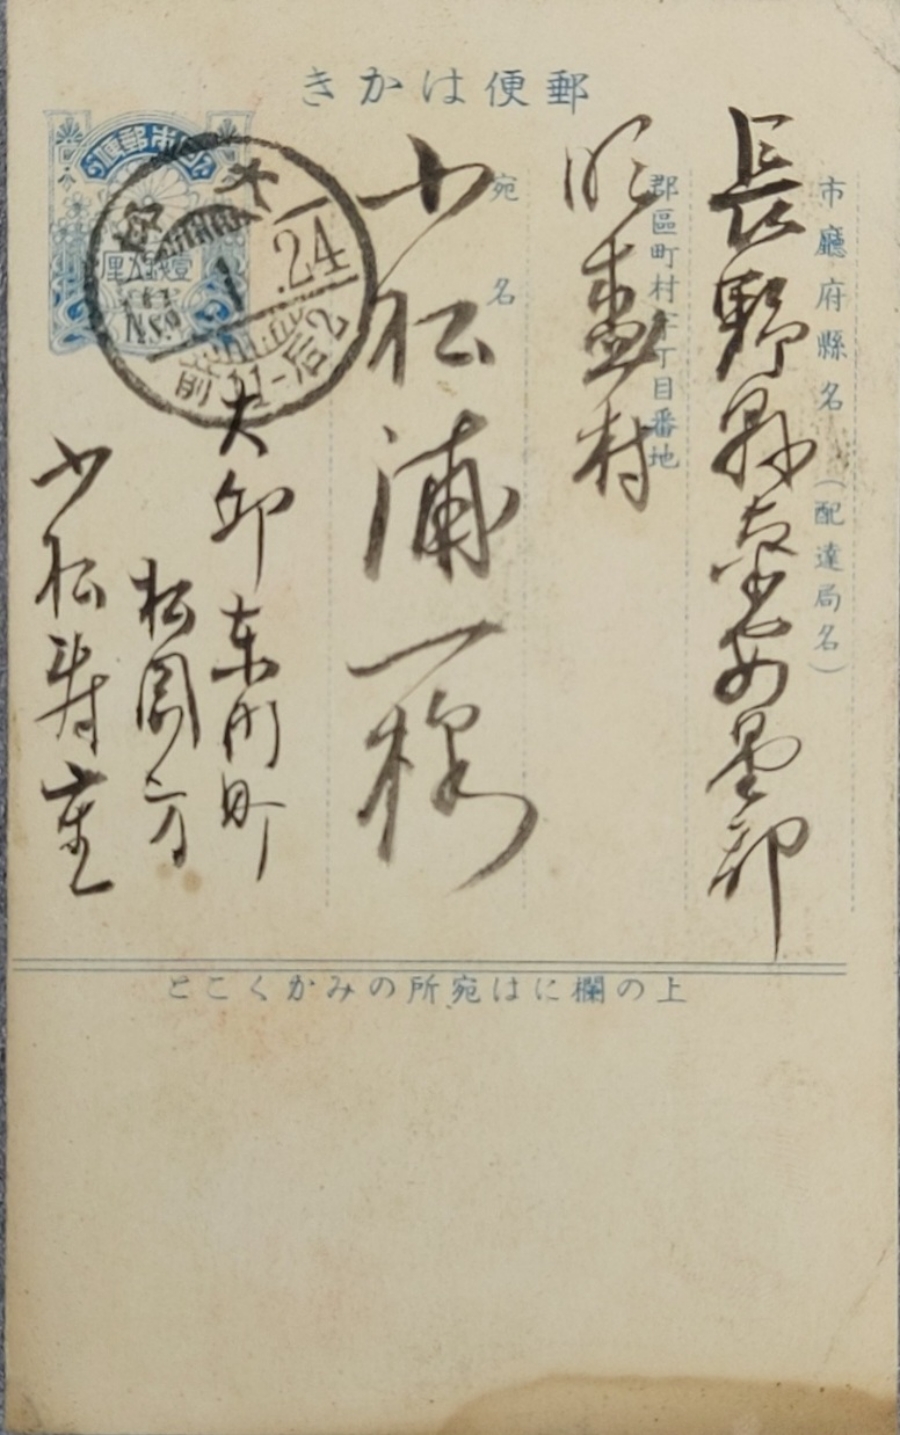 郵便はかき
市廳府縣名（配達局名）
長野縣南安曇郡
郡區町村字丁目番地
明盛村
宛名
小松浦一様
大
1.24
前11-后2
壹錢五厘
大町
東町
松園方
小松寿重
上の欄には宛所のみかくこと